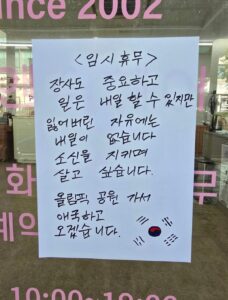 ince 2002
<임시 휴무>
장사도 중요하고
일은 내일 할 수 있지만
잃어버린 자유에는
내일이 없습니다
소신을 지키며
살고 싶습니다.
올림픽 공원 가서
애국하고
오겠습니다.
화
무
계의
10:00~19:00